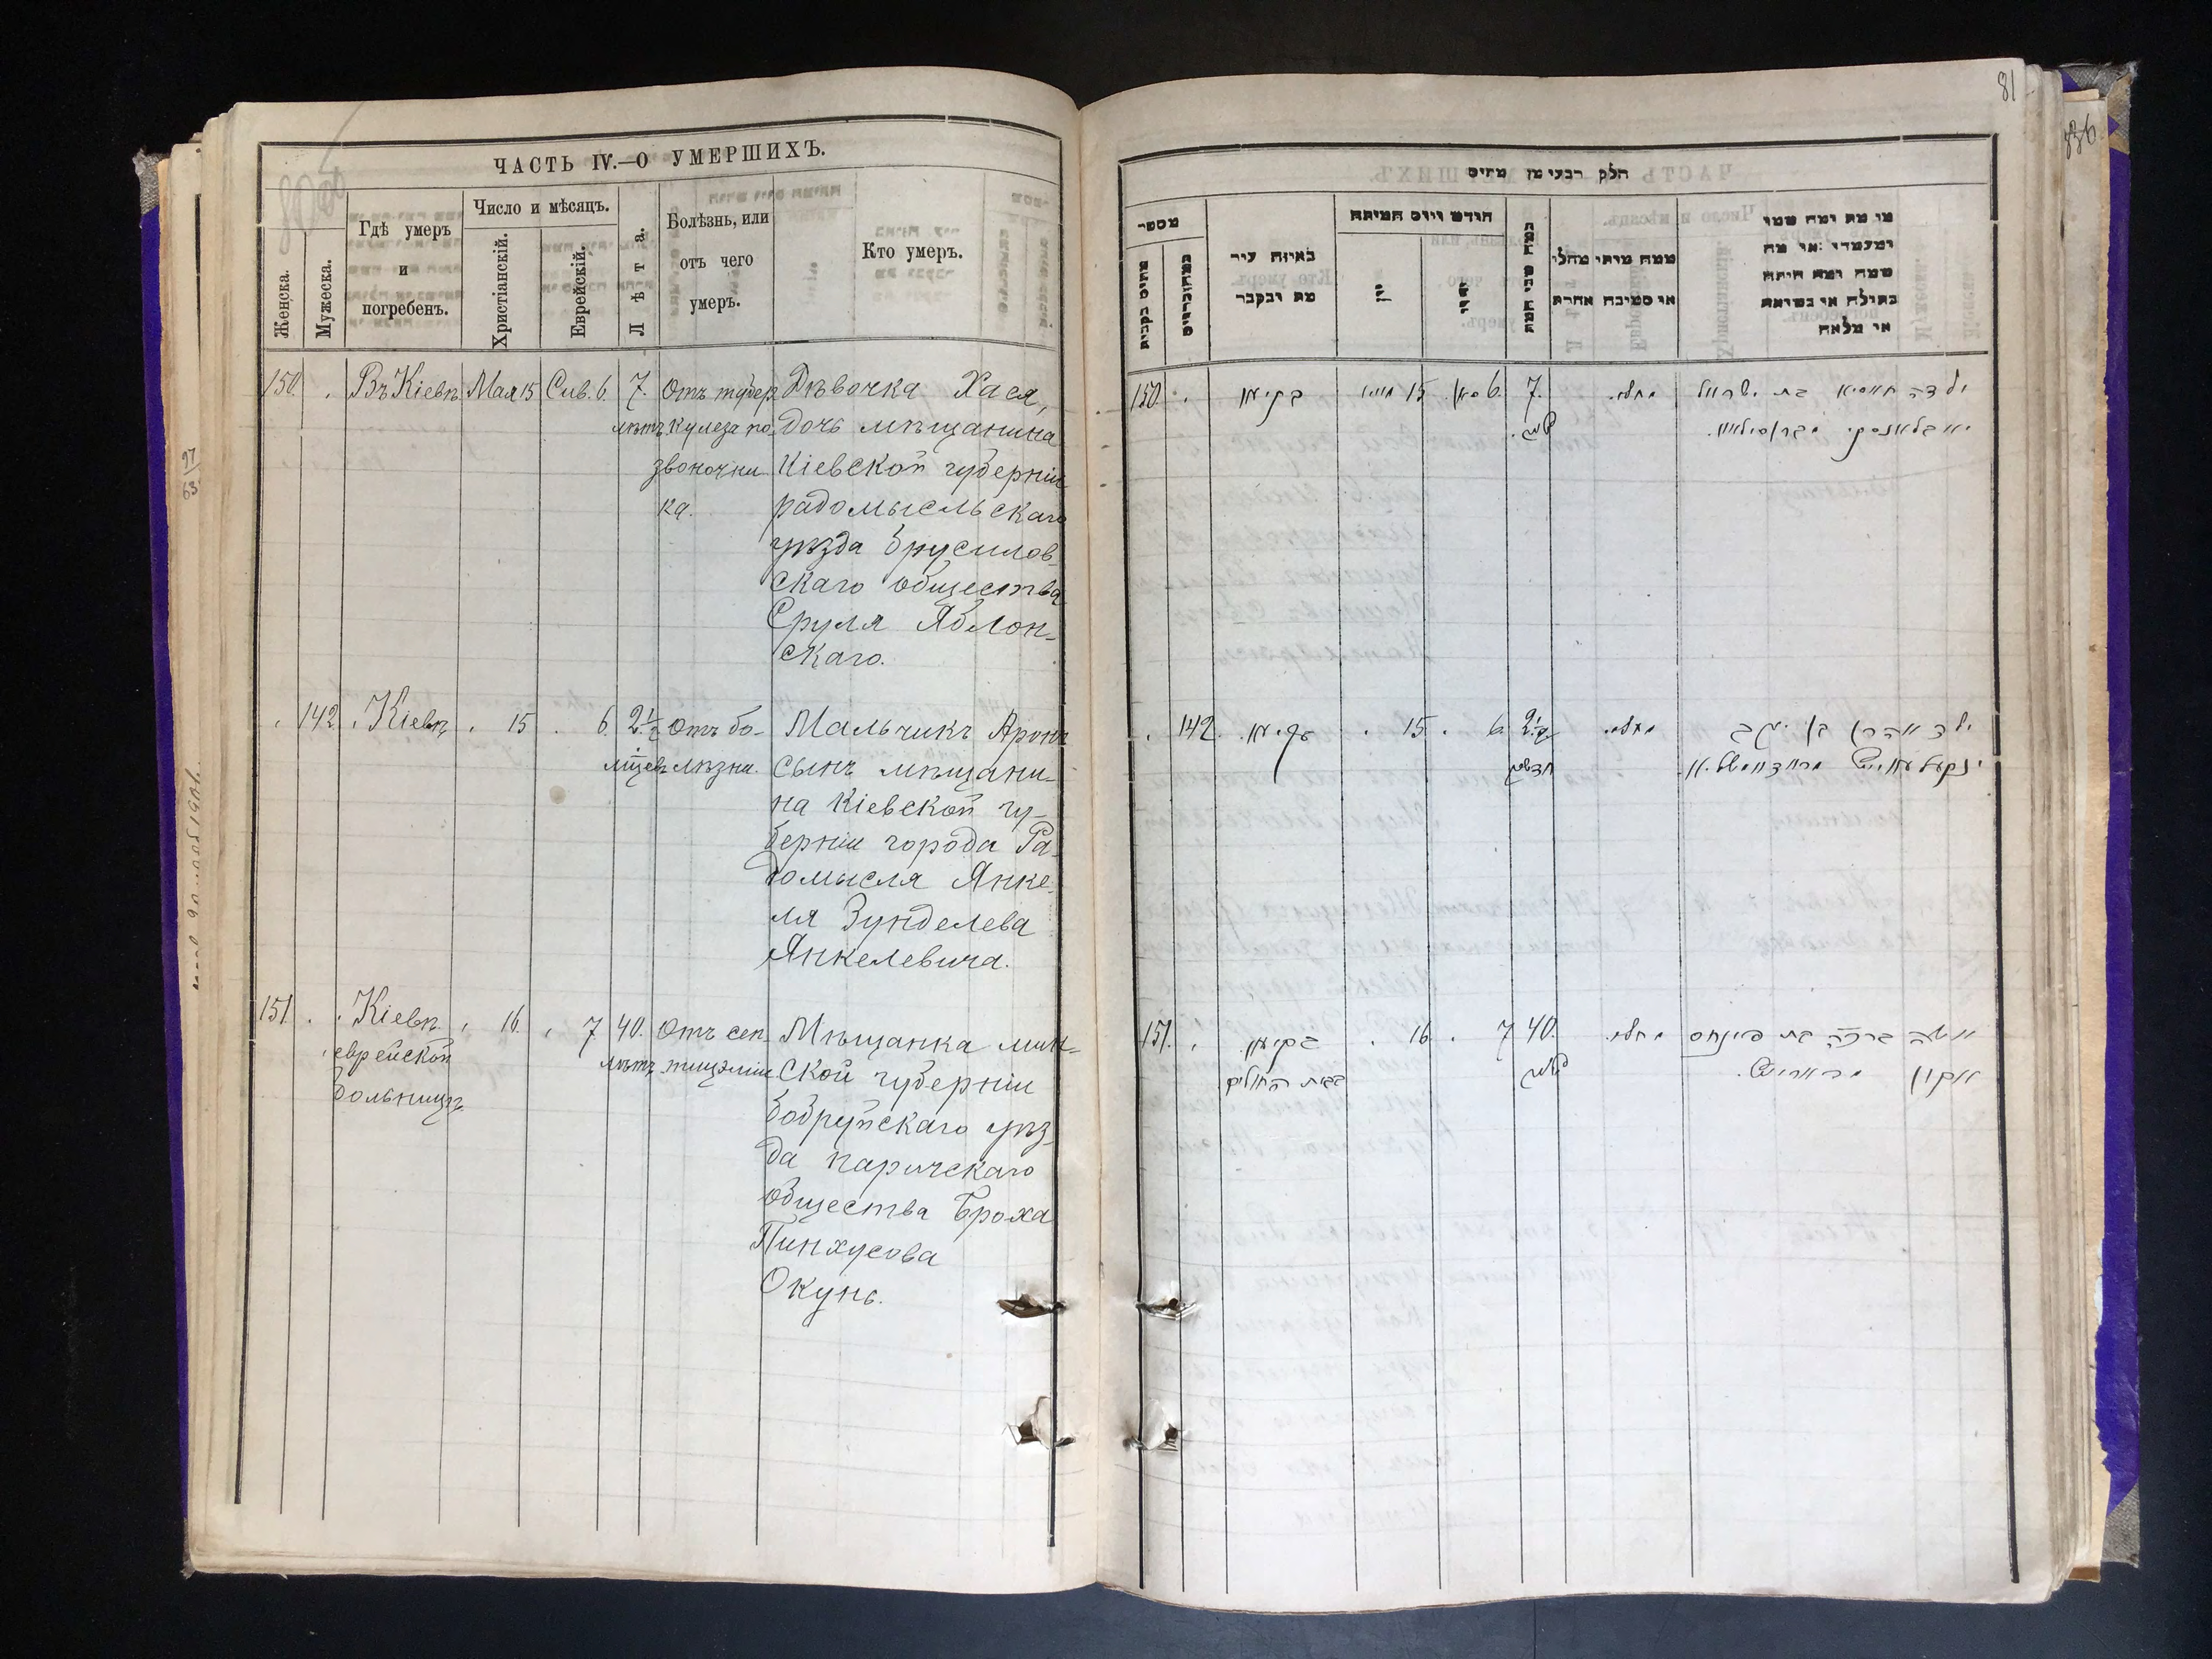 81
ЧАСТЬ IV.—О УМЕРШИХЪ.
Женска.
Мужеска.
Гдѣ умеръ
и
погребенъ.
Число и мѣсяцъ.
Христіанскій.
Еврейскій.
Лѣта.
Болѣзнь, или
отъ чего
умеръ.
Кто умеръ.
150.
Въ Кіевѣ
Мая 15
Сив. 6.
7.
лѣтъ
Отъ тубер
кулеза по
звоночни
ка.
Дѣвочка Хася,
дочь мѣщанина
Кіевской губерніи
радомысльскаго
уѣзда брусилов
скаго общества
Сруля Яблон-
скаго.
142
Кіевѣ
15
6
2 1/2
Отъ бо-
лѣзни.
Мальчикъ Аронъ
сынъ мѣщани-
на Кіевской гу-
берніи города Ра-
домысля Янке-
ля Зунделева
Янкелевича.
151
Кіевѣ
еврейской
больницѣ
16
7
40.
лѣтъ
Отъ сеп-
Мѣщанка мин-
ской губерніи
бобруйскаго уѣз-
да паричскаго
общества Броха
Пинхусова
Окунь.
חלק רביעי מן מתים
מספר
באיזה עיר
מת ונקבר
חודש ויום המיתה
ממה מיתי מחלי
או סמיבה אחרת
מי מת ומה שמו
ומעמדו או מה
שמה ומה היתה
בתולה או נשואה
או מלאה
150.
בקיעו
15 מאי
6 סיון
7.
שנים
מחלי.
ילדה חאסיא בת ישראל
יאבלאנסקי מברוסילאוו.
142.
בקיעו.
15.
6.
2 1/2
חדשים
מחלי.
ילד אהרן בן יעקב
151.
בקיעו.
בבית החולים
16.
7
40.
שנים
מחלי.
אשה ברכה בת פינחס
אקון